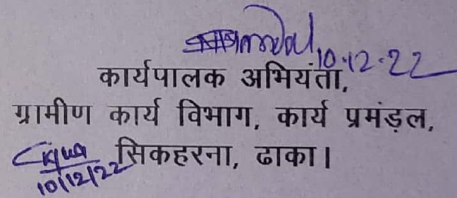 10.12.22
कार्यपालक अभियंता,
ग्रामीण कार्य विभाग, कार्य प्रमंड़ल,
सिकहरना, ढाका।
10/12/22